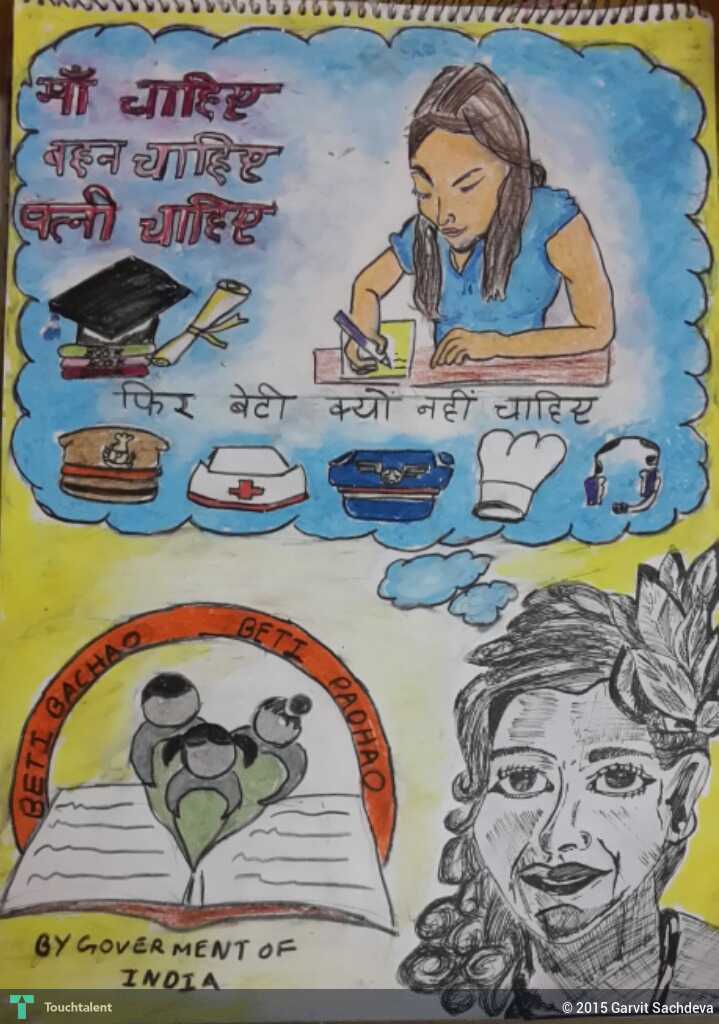 माँ चाहिए
बहन चाहिए
पत्नी चाहिए
फिर बेटी क्यों नहीं चाहिए
BETI BACHAO BETI PADHAO
BY GOVERMENT OF
INDIA
Touchtalent
© 2015 Garvit Sachdeva